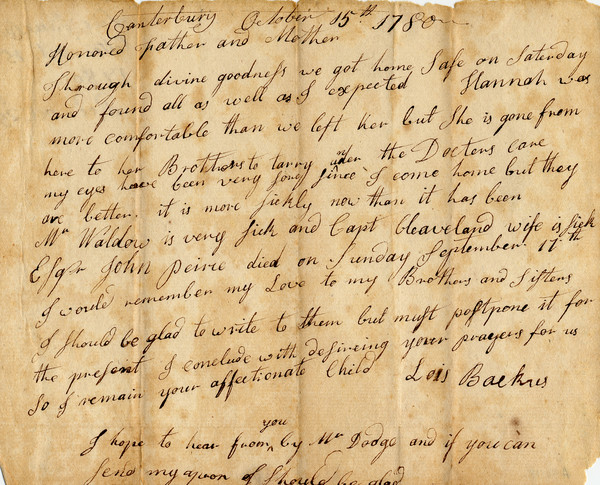 Canterbury October 15th 1780
Honored father and Mother
Through divine goodness we got home Safe on Saterday
and found all as well as I expected Hannah was
more comfortable than we left her but She is gone from
here to her Brothers to tarry under the Doctors care
my eyes have been very sore since I come home but they
are better. it is more sickly now than it has been
Mr Waldow is very sick and Capt Cleaveland wife is sick
Esqr John Peirie died on Sunday September 17th
I would remember my Love to my Brothers and Sisters
I should be glad to write to them but must postpone it for
the present I conclude with desireing your prayers for us
So I remain your affectionate Child Lois Backus
I hope to hear from you by Mr Dodge and if you can
send my apron I should be glad